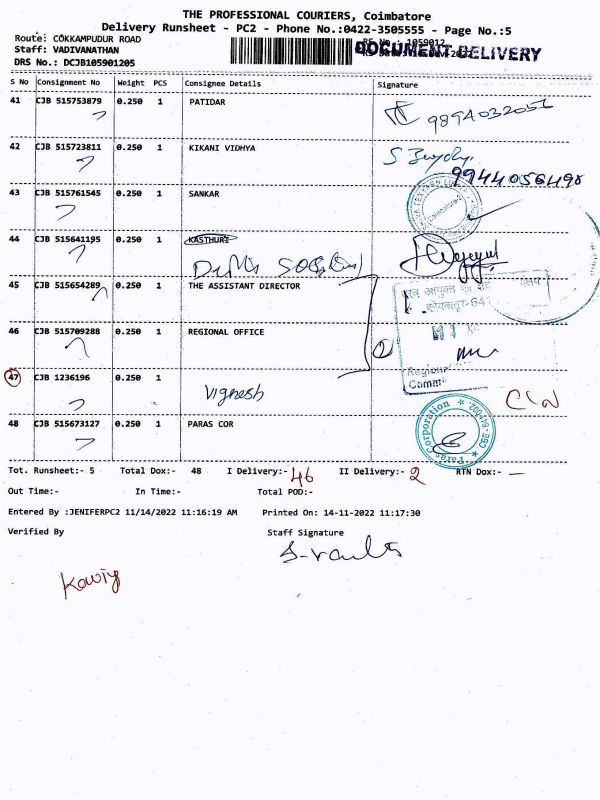 THE PROFESSIONAL COURIERS, Coimbatore
Delivery Runsheet - PC2 - Phone No.:0422-3505555 - Page No.:5
Route: COKKAMPUDUR ROAD
RS No.: 1059012
DOCUMENT DELIVERY
Staff: VADIVANATHAN
DRS No.: DCJB105901205
S No Consignment No Weight PCS Consignee Details Signature
41 CJB 515753879 0.250 1 PATIDAR
42 CJB 515723811 0.250 1 KIKANI VIDHYA
9944056498
43 CJB 515761545 0.250 1 SANKAR
44 CJB 515641195 0.250 1 KASTHURI
45 CJB 515654289 0.250 1 THE ASSISTANT DIRECTOR
46 CJB 515709288 0.250 1 REGIONAL OFFICE
47 CJB 1236196 0.250 1
Vignesh
48 CJB 515673127 0.250 1 PARAS COR
Tot. Runsheet:- 5 Total Dox:- 48 I Delivery:- 46 II Delivery:- 2 RTN Dox:- —
Out Time:- In Time:- Total POD:-
Entered By :JENIFERPC2 11/14/2022 11:16:19 AM Printed On: 14-11-2022 11:17:30
Verified By Staff Signature